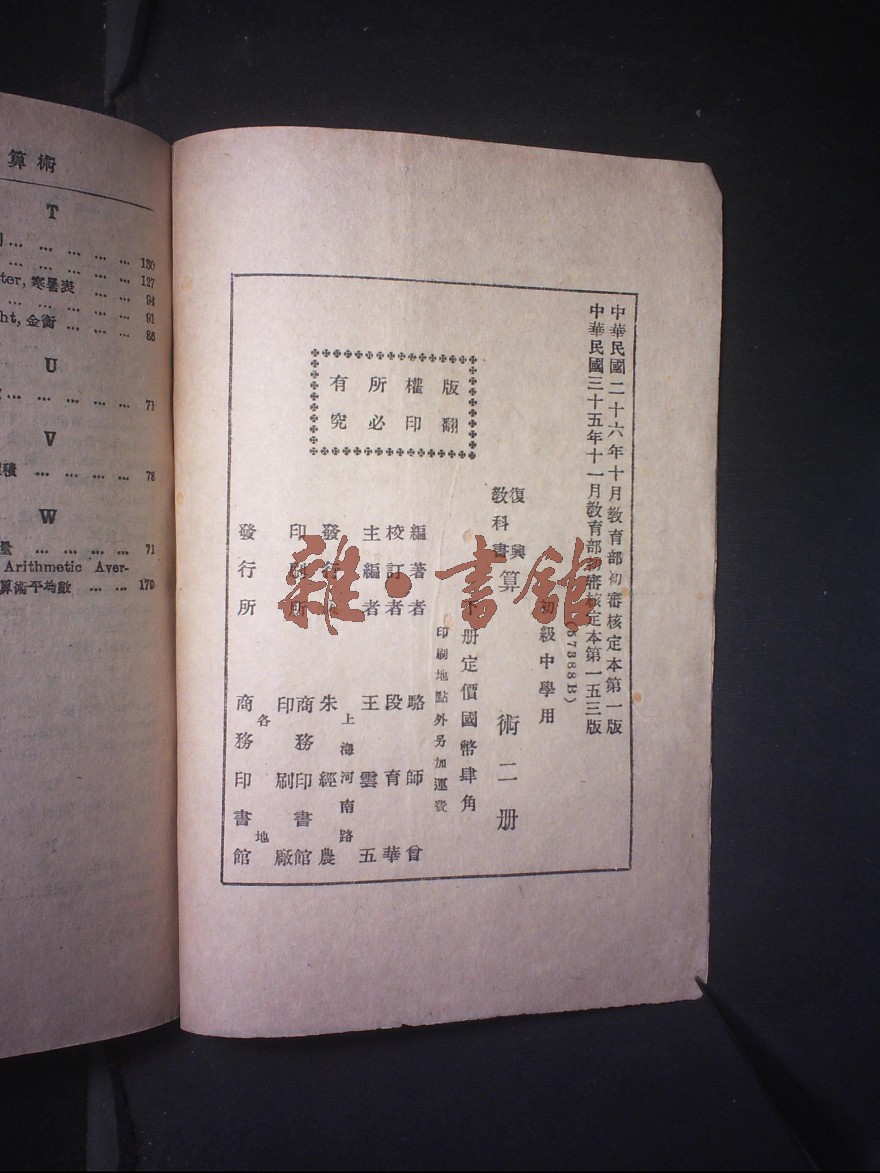 算術
T
130
127
ter, 寒暑表 94
91
ht, 金衡 86
U
71
V
積 78
W
量 71
Arithmetic Aver-
算術平均數 170
中華民國二十六年十月教育部初審核定本第一版
中華民國三十五年十一月教育部初審核定本第一五三版
(57388B)
初級中學用
復興教科書 算術二册
下册定價國幣肆角
印刷地點外另加運費
版權所有
翻印必究
編著者 駱師曾
校訂者 段育華
主編者 王雲五
發行人 朱經農
上海河南路
印刷所 商務印書館
印刷廠
各地
發行所 商務印書館
雜·書館